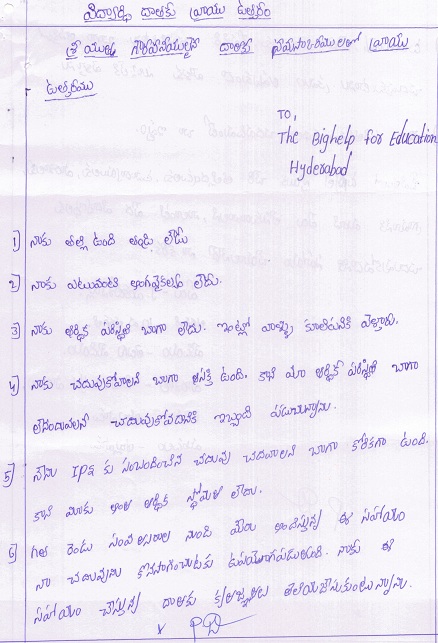 విద్యార్థి దాతకు వ్రాయు ఉత్తరం
శ్రీ యుత్త గౌరవనీయులైన దాతకు నమస్కారములతో వ్రాయు
ఉత్తరము
TO,
The Bighelp for Education
Hyderabad
1] నాకు తల్లి ఉంది తండ్రి లేడు
2] నాకు ఎటువంటి అంగవైకల్యం లేదు.
3] నాకు ఆర్థిక పరిస్థితి బాగా లేదు. ఇంట్లో వాళ్ళు కూలిపనికి వెళ్తారు.
4] నాకు చదువుకోవాలని బాగా ఆసక్తి ఉంది. కాని మా ఆర్థిక పరిస్థితి బాగా
లేనందువలన చదువుకోవడానికి ఇబ్బంది పడుచున్నాను.
5] నేను IPS కు సంబంధించిన చదువు చదవాలని బాగా కోరికగా ఉంది.
కాని మాకు అంత ఆర్థిక స్థోమత లేదు.
6] గత రెండు సంవత్సరాల నుండి మీరు అందిస్తున్న ఈ సహాయం
నా చదువును కొనసాగించుటకు ఉపయోగపడుతుంది. నాకు ఈ
సహాయం చేస్తున్న దాతకు కృతజ్ఞతలు తెలియజేసుకుంటున్నాను.